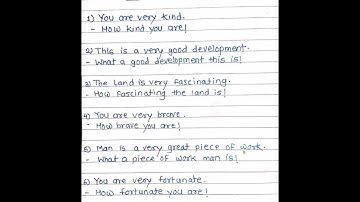 1) You are very kind.
- How kind you are!
2) This is a very good development.
- What a good development this is!
3) The land is very fascinating.
- How fascinating the land is!
4) You are very brave.
- How brave you are!
5) Man is a very great piece of work.
- What a piece of work man is!
6) You are very fortunate.
- How fortunate you are!